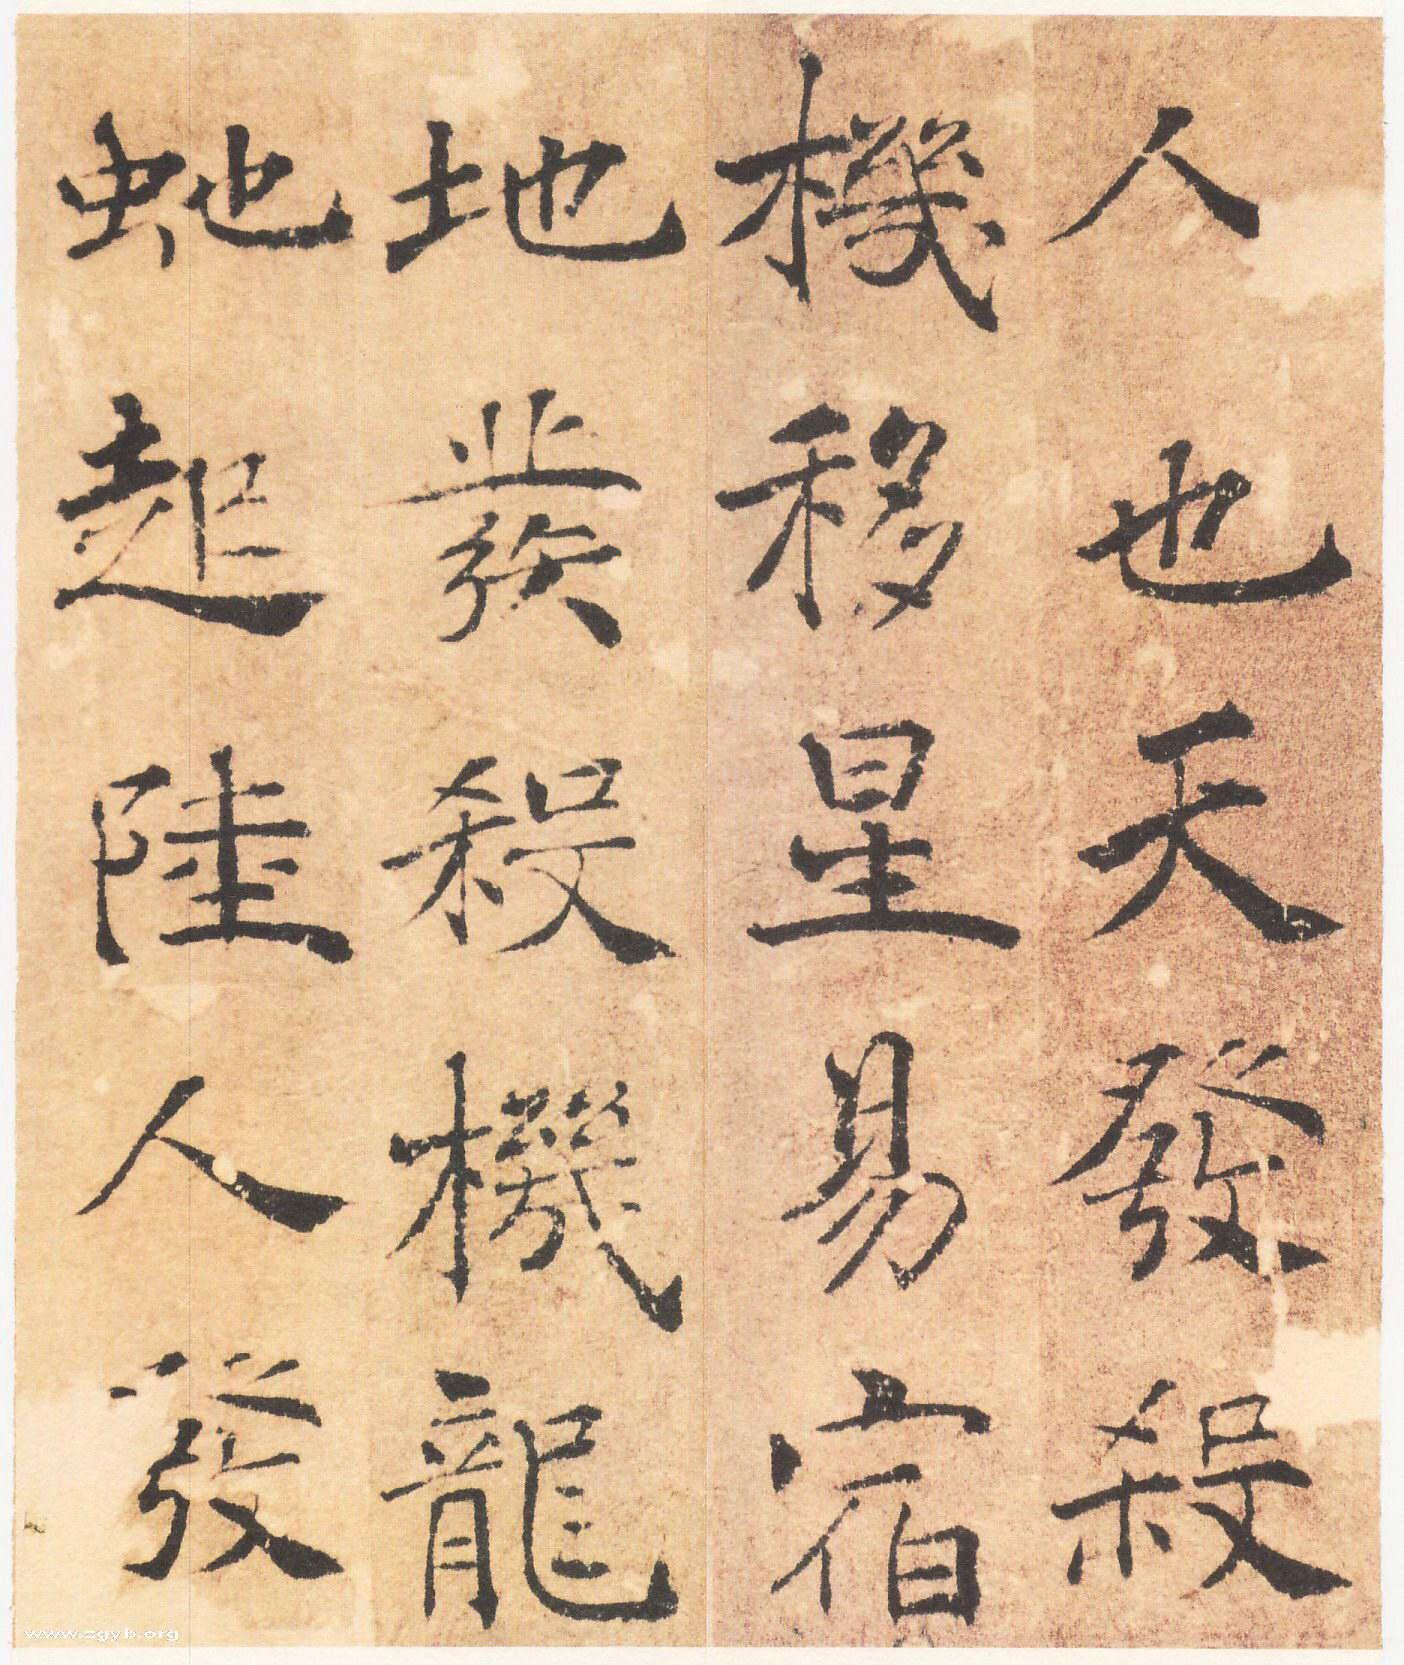 人也天發殺
機移星易宿
地發殺機龍
虵起陸人發
www.zgyb.org